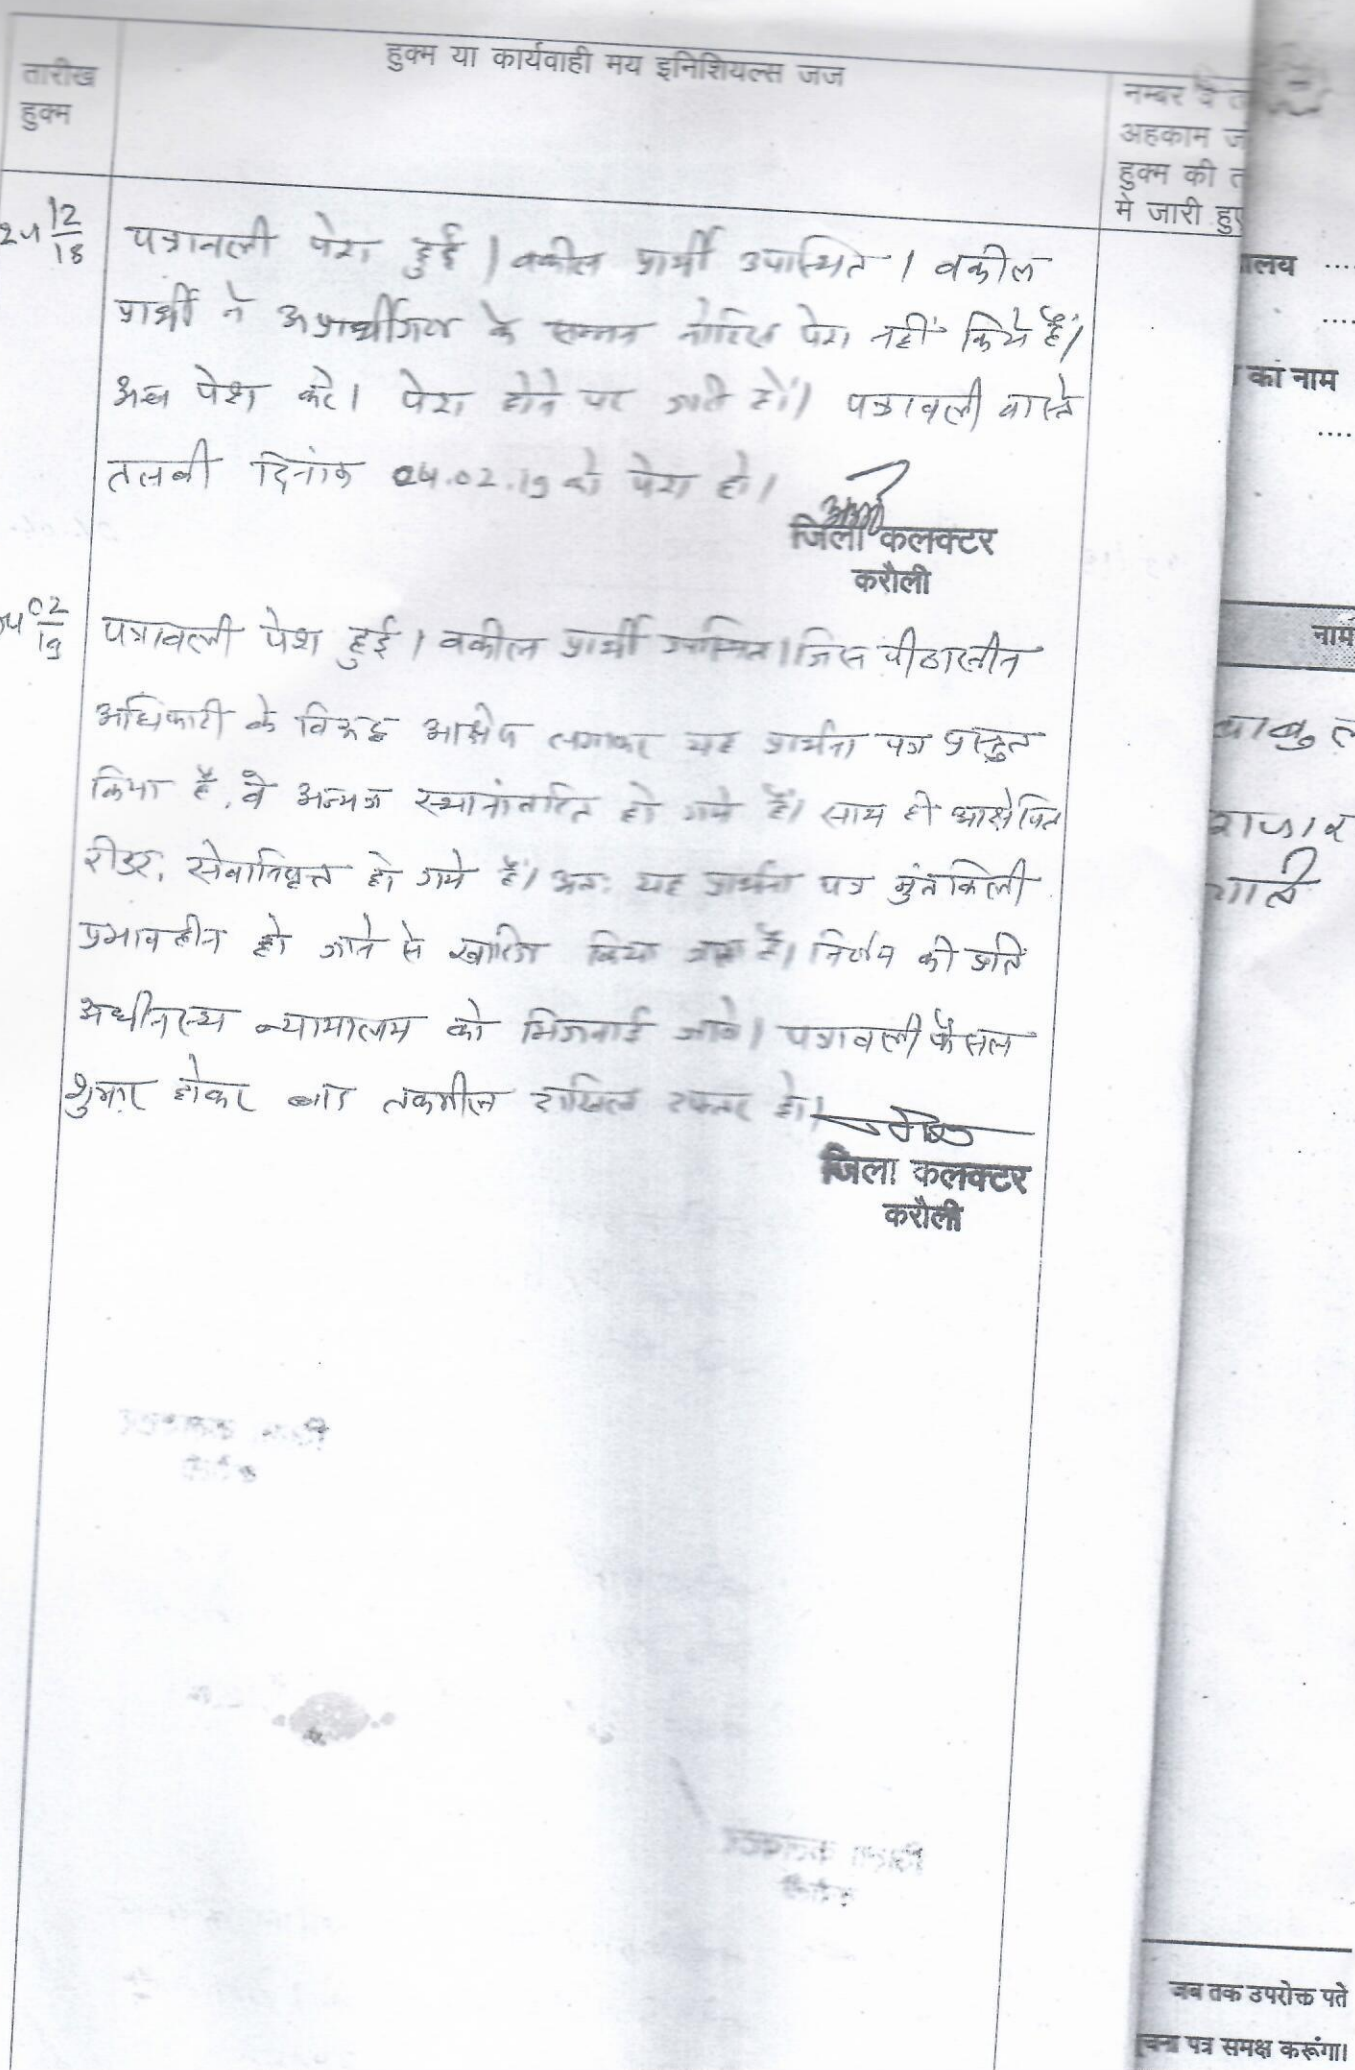 तारीख
हुक्म
हुक्म या कार्यवाही मय इनिशियल्स जज
नम्बर व
अहकाम
हुक्म की
मे जारी
12
18
पत्रावली पेश हुई । वकील प्रार्थी उपास्थित । वकील
प्रार्थी ने अप्रार्थीगण के सम्मन नोटिस पेश नहीं किये हैं।
पेश करे। पेश होने पर जारी हों। पत्रावली वास्ते
तलबी दिनांक 04.02.19 को पेश हो।
जिला कलक्टर
करौली
02
19
पत्रावली पेश हुई । वकील प्रार्थी उपस्थित । जिस पीठासीन
अधिकारी के विरूद्ध आक्षेप लगाकर यह प्रार्थना पत्र प्रस्तुत
किया है, वे अन्यत्र स्थानांतरित हो गये हैं। साथ ही आक्षेपित
रीडर, सेवानिवृत्त हो गये हैं। अतः यह प्रार्थना पत्र मुंतकिली
प्रभावहीन हो जाने से खारिज किया जाता है। निर्णय की प्रति
अधीनस्थ न्यायालय को भिजवाई जावे। पत्रावली फैसल
शुमार होकर बाद तकमील दाखिल दफ्तर हो।
जिला कलक्टर
करौली
कां नाम
नाम
जब तक उपरोक्त पते
पत्र समक्ष करूंगा।